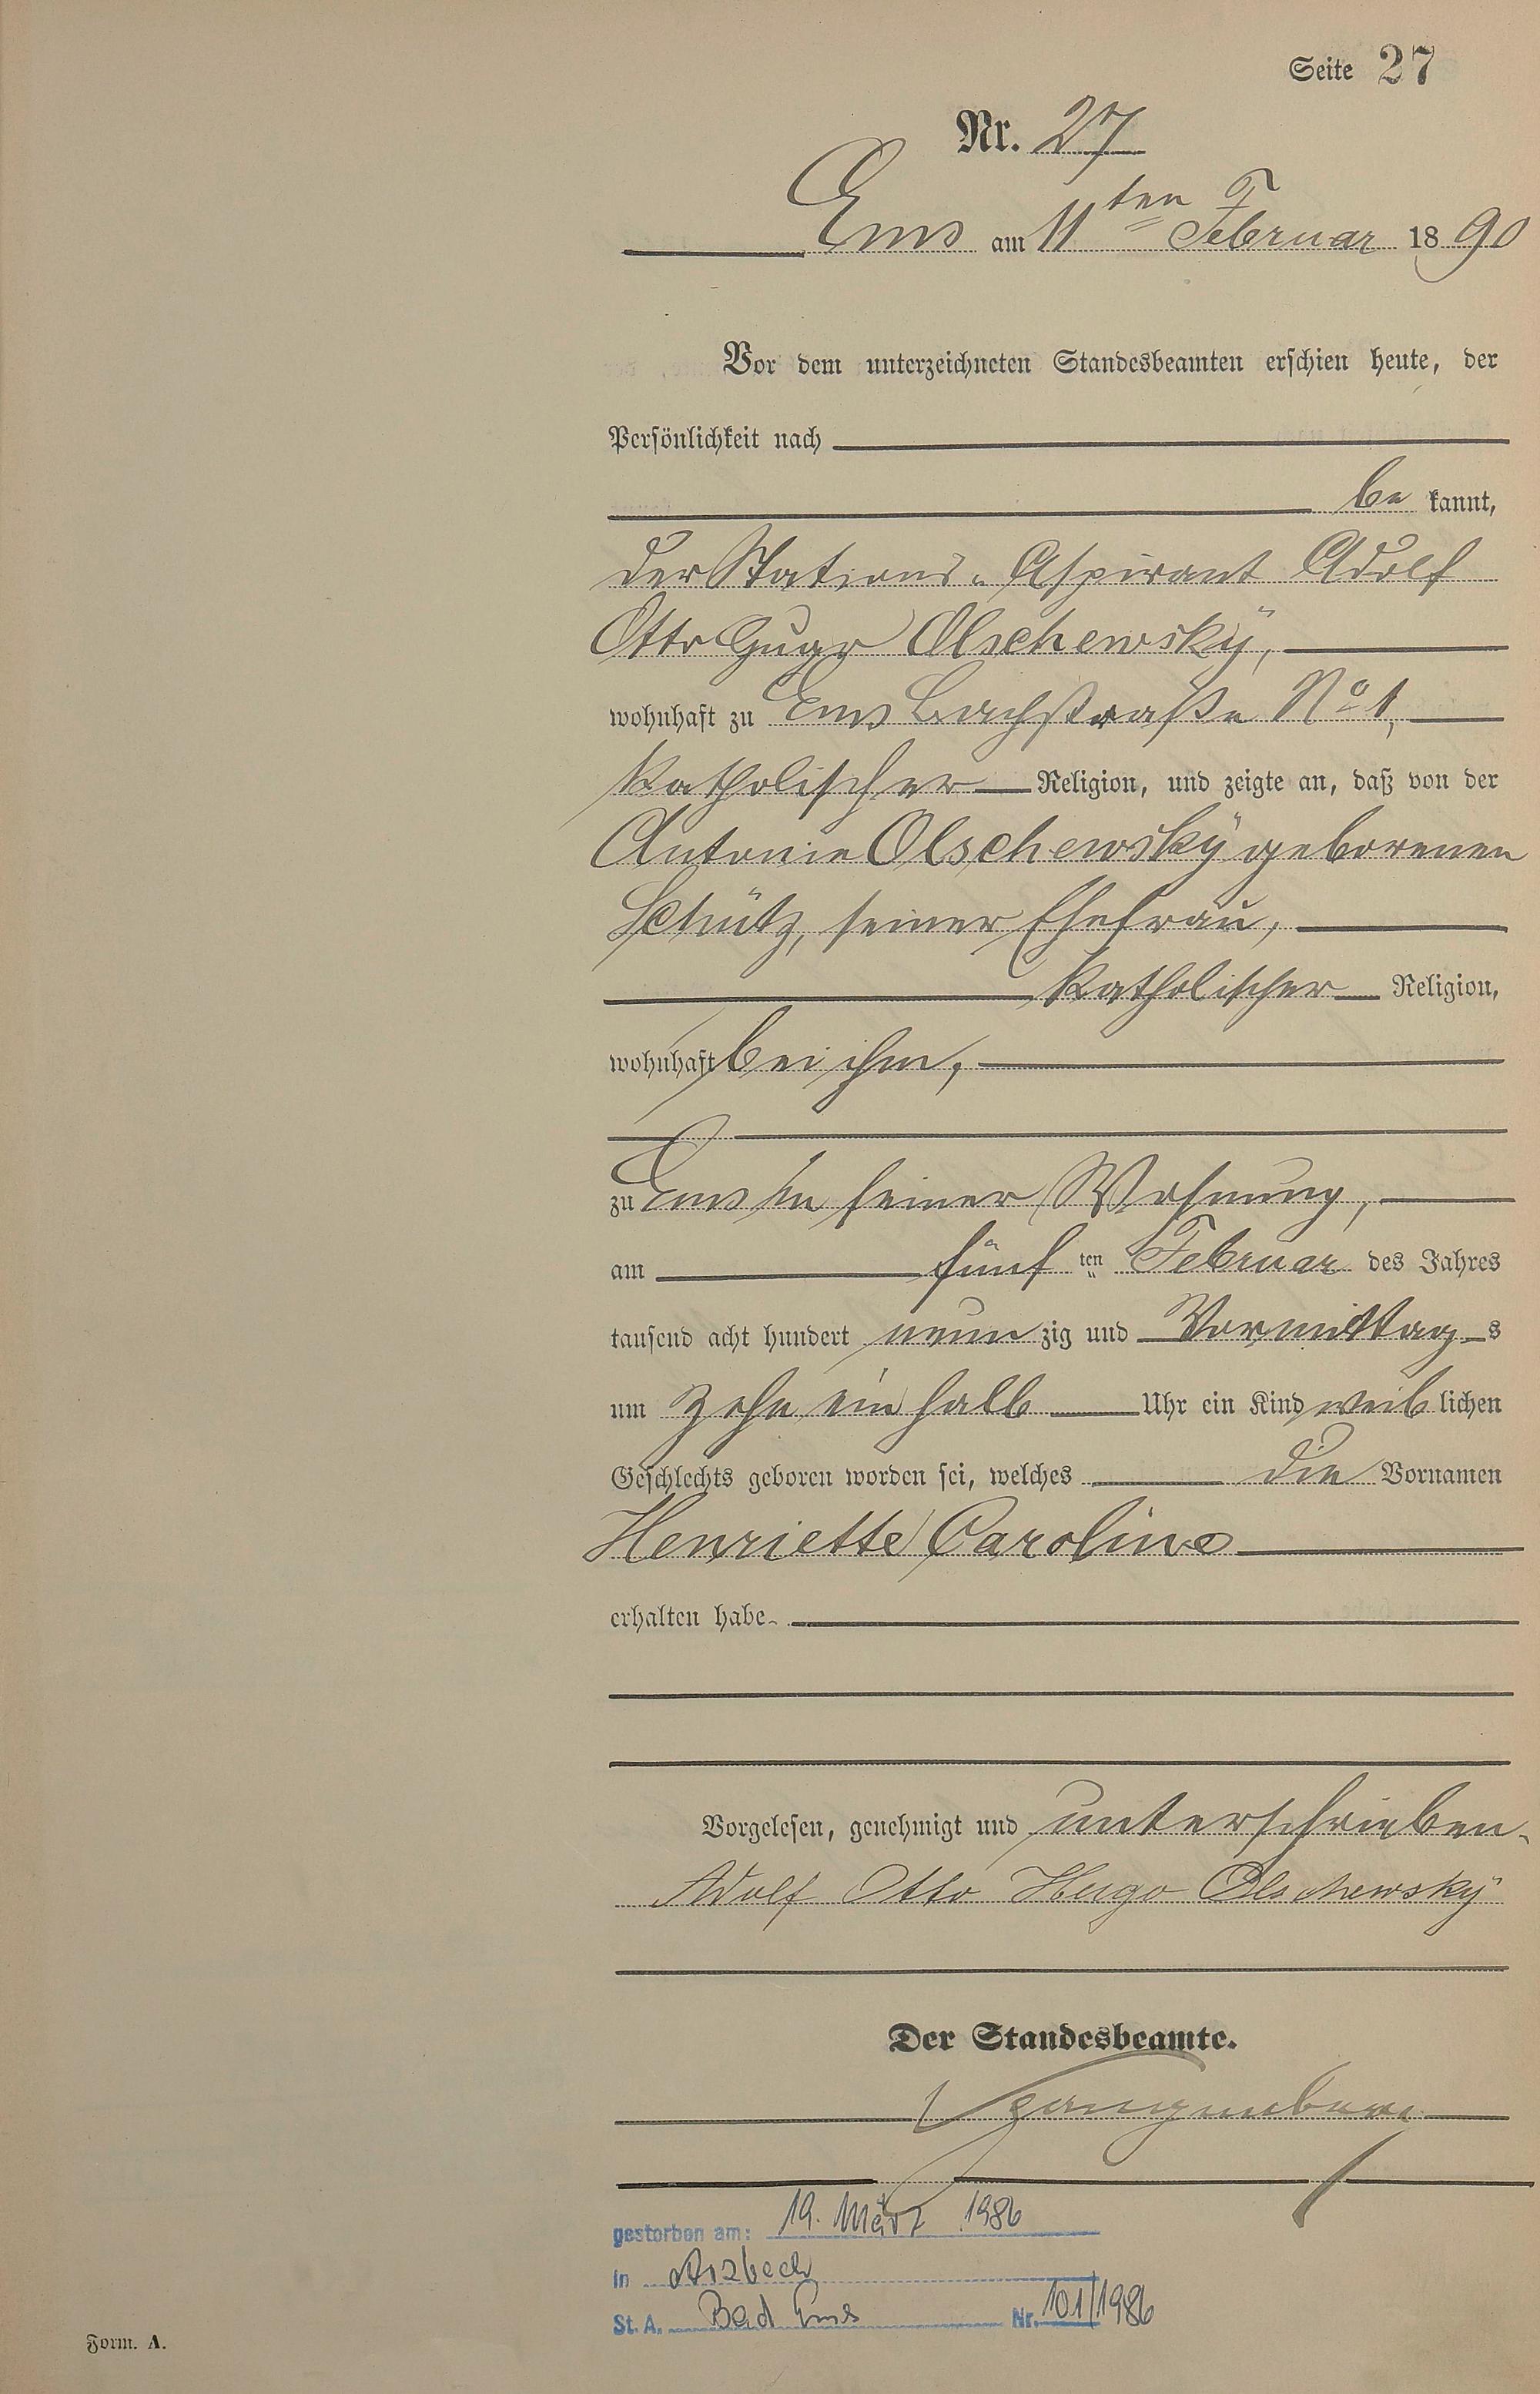 Seite 27
Nr. 27
Ems am 11ten Februar 1890
Vor dem unterzeichneten Standesbeamten erschien heute, der
Persönlichkeit nach
be kannt,
der Stations-Aspirant Adolf
Otto Hugo Olschewsky,
wohnhaft zu Ems Bachstraße No 1,
katholischer Religion, und zeigte an, daß von der
Antonie Olschewsky geborenen
Schütz, seiner Ehefrau,
katholischer Religion,
wohnhaft bei ihm,
zu Ems in seiner Wohnung,
am fünf ten Februar des Jahres
tausend acht hundert neun zig und Vormittag s
um zehn ein halb Uhr ein Kind weib lichen
Geschlechts geboren worden sei, welches die Vornamen
Henriette Caroline
erhalten habe.
Vorgelesen, genehmigt und unterschrieben.
Adolf Otto Hugo Olschewsky
Der Standesbeamte.
gestorben am: 19. März 1986
in Arzbach
St. A. Bad Ems Nr. 101/1986
Form. A.